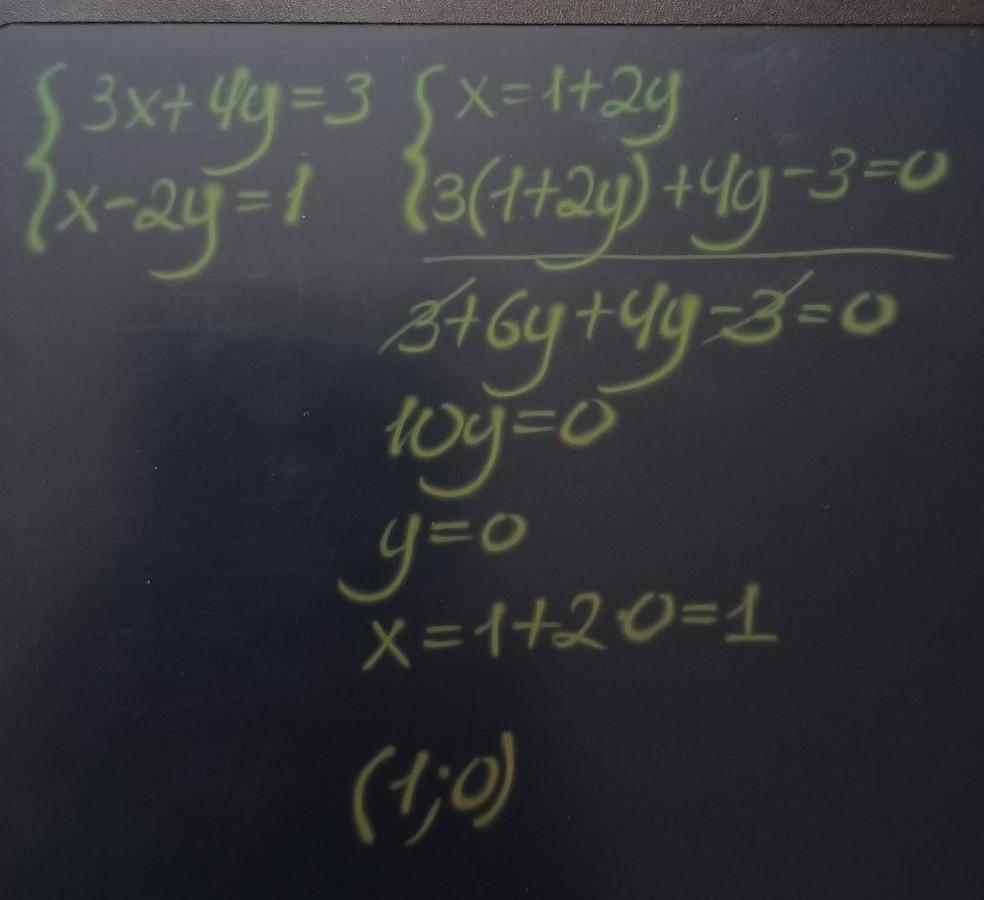 3x+4y=3
x-2y=1
x=1+2y
3(1+2y)+4y-3=0
3+6y+4y-3=0
10y=0
y=0
x=1+2·0=1
(1;0)